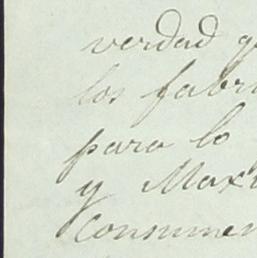 verdad q
los fabri
para lo
y Max
consumen